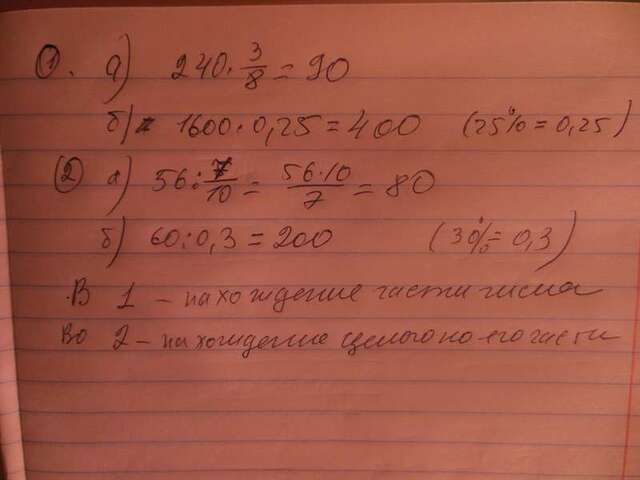 1. а) 240 · 3/8 = 90
б) 1600 · 0,25 = 400 (25% = 0,25)
2 а) 56 : 7/10 = 56·10/7 = 80
б) 60 : 0,3 = 200 (30% = 0,3)
В 1 – нахождение части числа
Во 2 – нахождение целого по его части